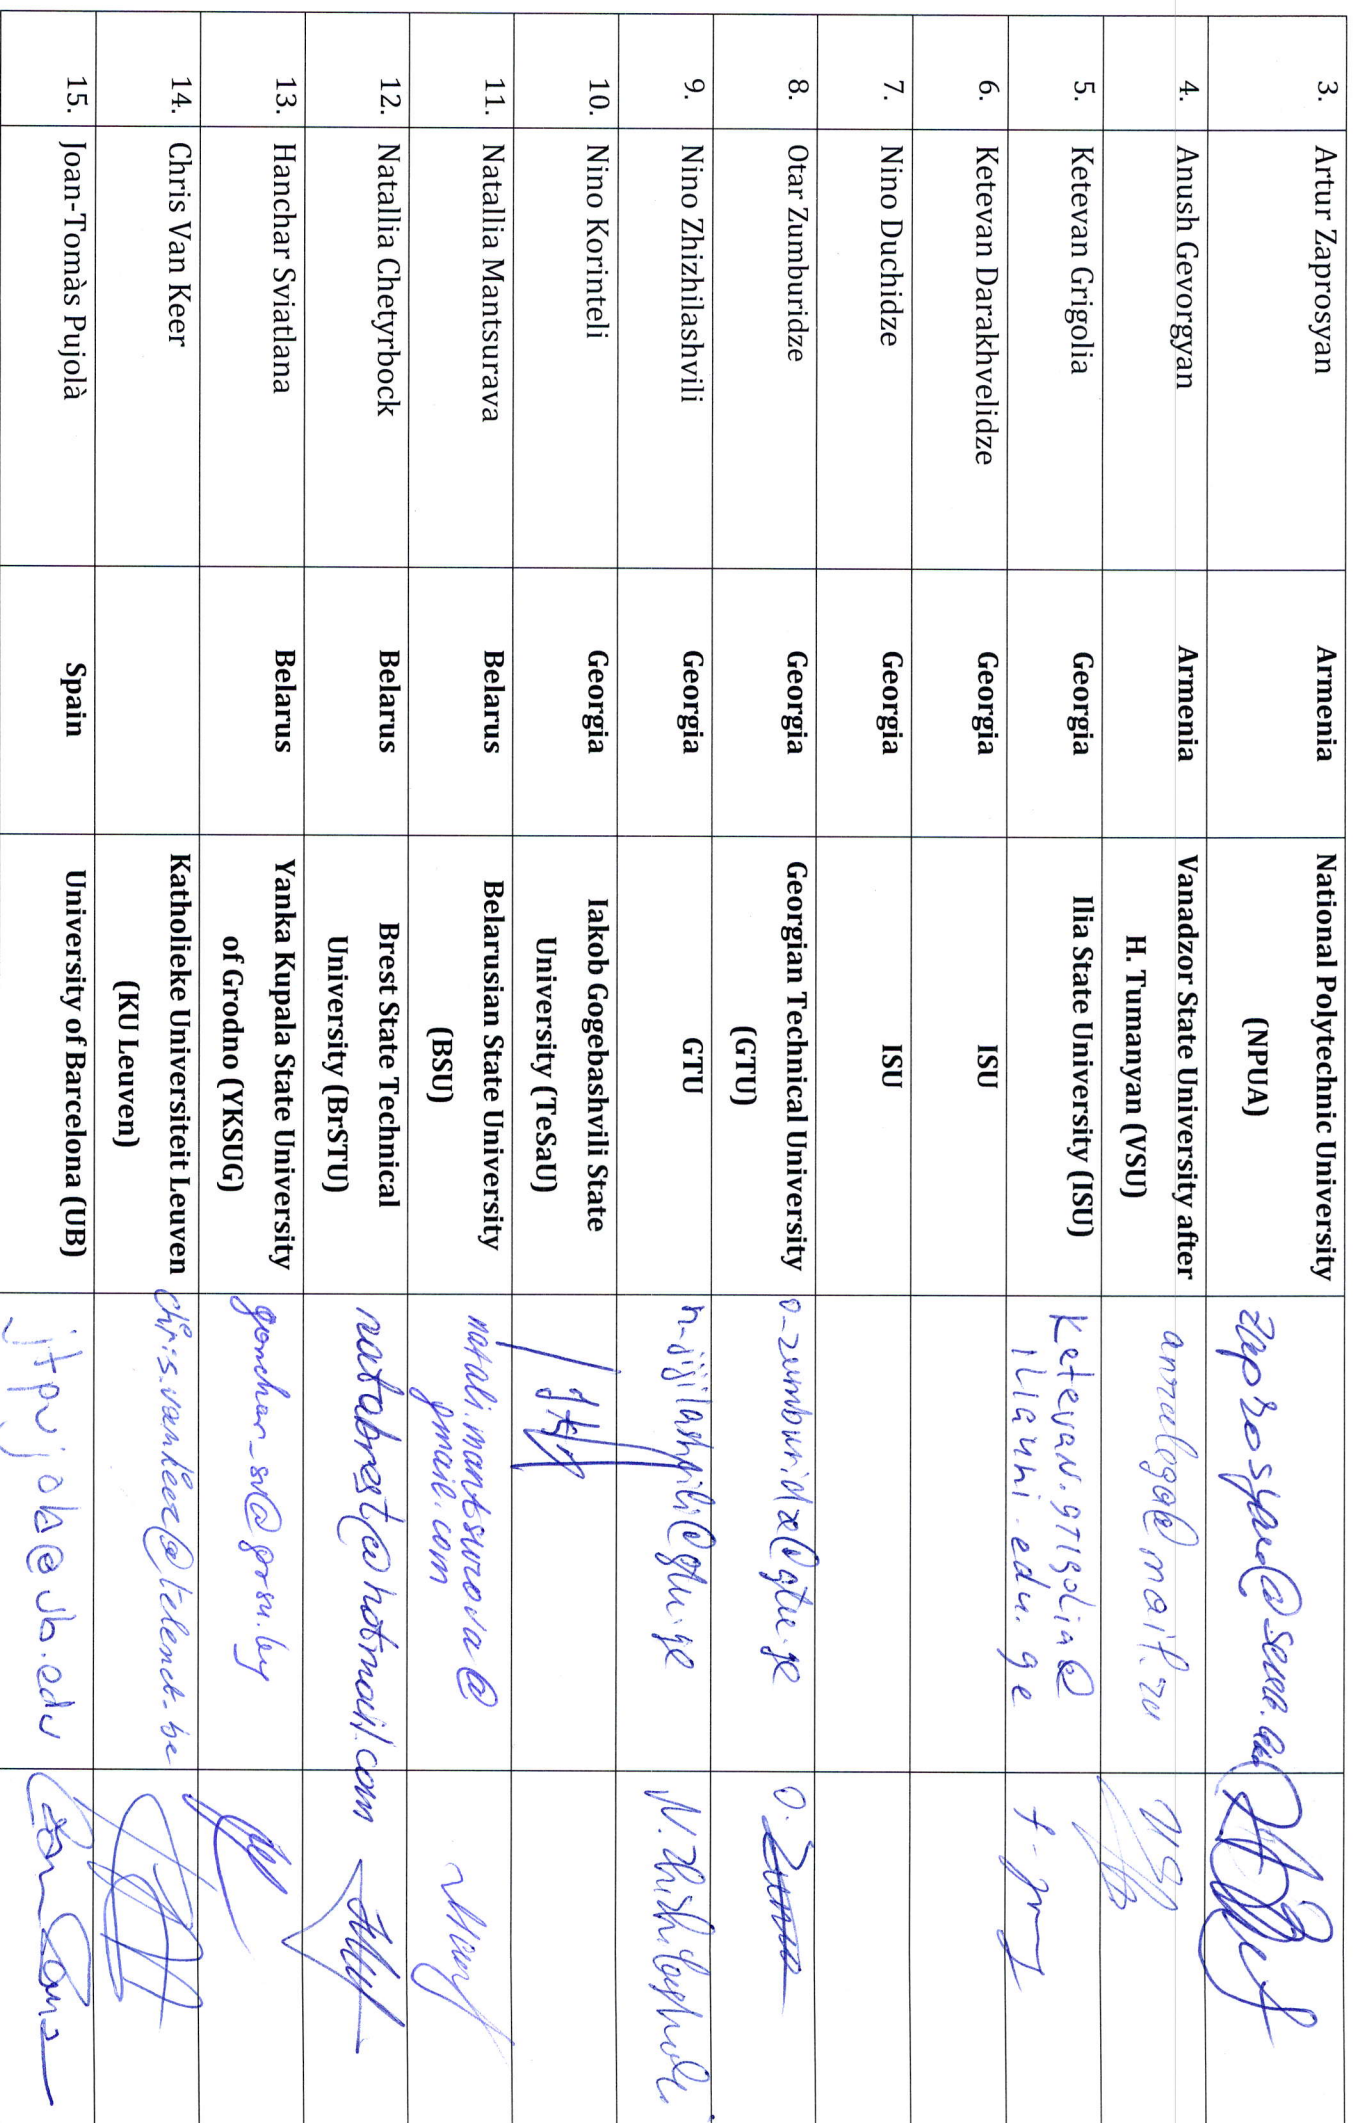 3. Artur Zaprosyan Armenia National Polytechnic University
(NPUA)
4. Anush Gevorgyan Armenia Vanadzor State University after
H. Tumanyan (VSU)
5. Ketevan Grigolia Georgia Ilia State University (ISU) ketevan.grigolia@
iliauni.edu.ge
6. Ketevan Darakhvelidze Georgia ISU
7. Nino Duchidze Georgia ISU
8. Otar Zumburidze Georgia Georgian Technical University o-zumburidze@gtu.ge
(GTU)
9. Nino Zhizhilashvili Georgia GTU n-jijilashvili@gtu.ge N. Zhizhilashvili
10. Nino Korinteli Georgia Iakob Gogebashvili State
University (TeSaU)
11. Natallia Mantsurava Belarus Belarusian State University natali.mantsurova@
(BSU) gmail.com
12. Natallia Chetyrbock Belarus Brest State Technical natabrest@hotmail.com
University (BrSTU)
13. Hanchar Sviatlana Belarus Yanka Kupala State University gonchar_sv@grsu.by
of Grodno (YKSUG)
14. Chris Van Keer Katholieke Universiteit Leuven chris.vankeer@telenet.be
(KU Leuven)
15. Joan-Tomàs Pujolà Spain University of Barcelona (UB) jtpujola@ub.edu